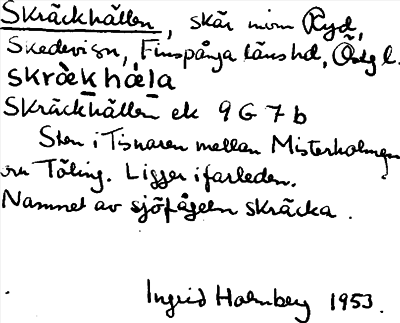 Skräckhällen, skär inom Ryd,
Skedevi sn, Finspånga läns hd, Östg l.
skräkhäla
Skräckhällen ek 9 G 7 b
Sten i Tisnaren mellan Misterholmen
och Täling. Ligger i farleden.
Namnet av sjöfågeln skräcka.
Ingrid Holmberg 1953.